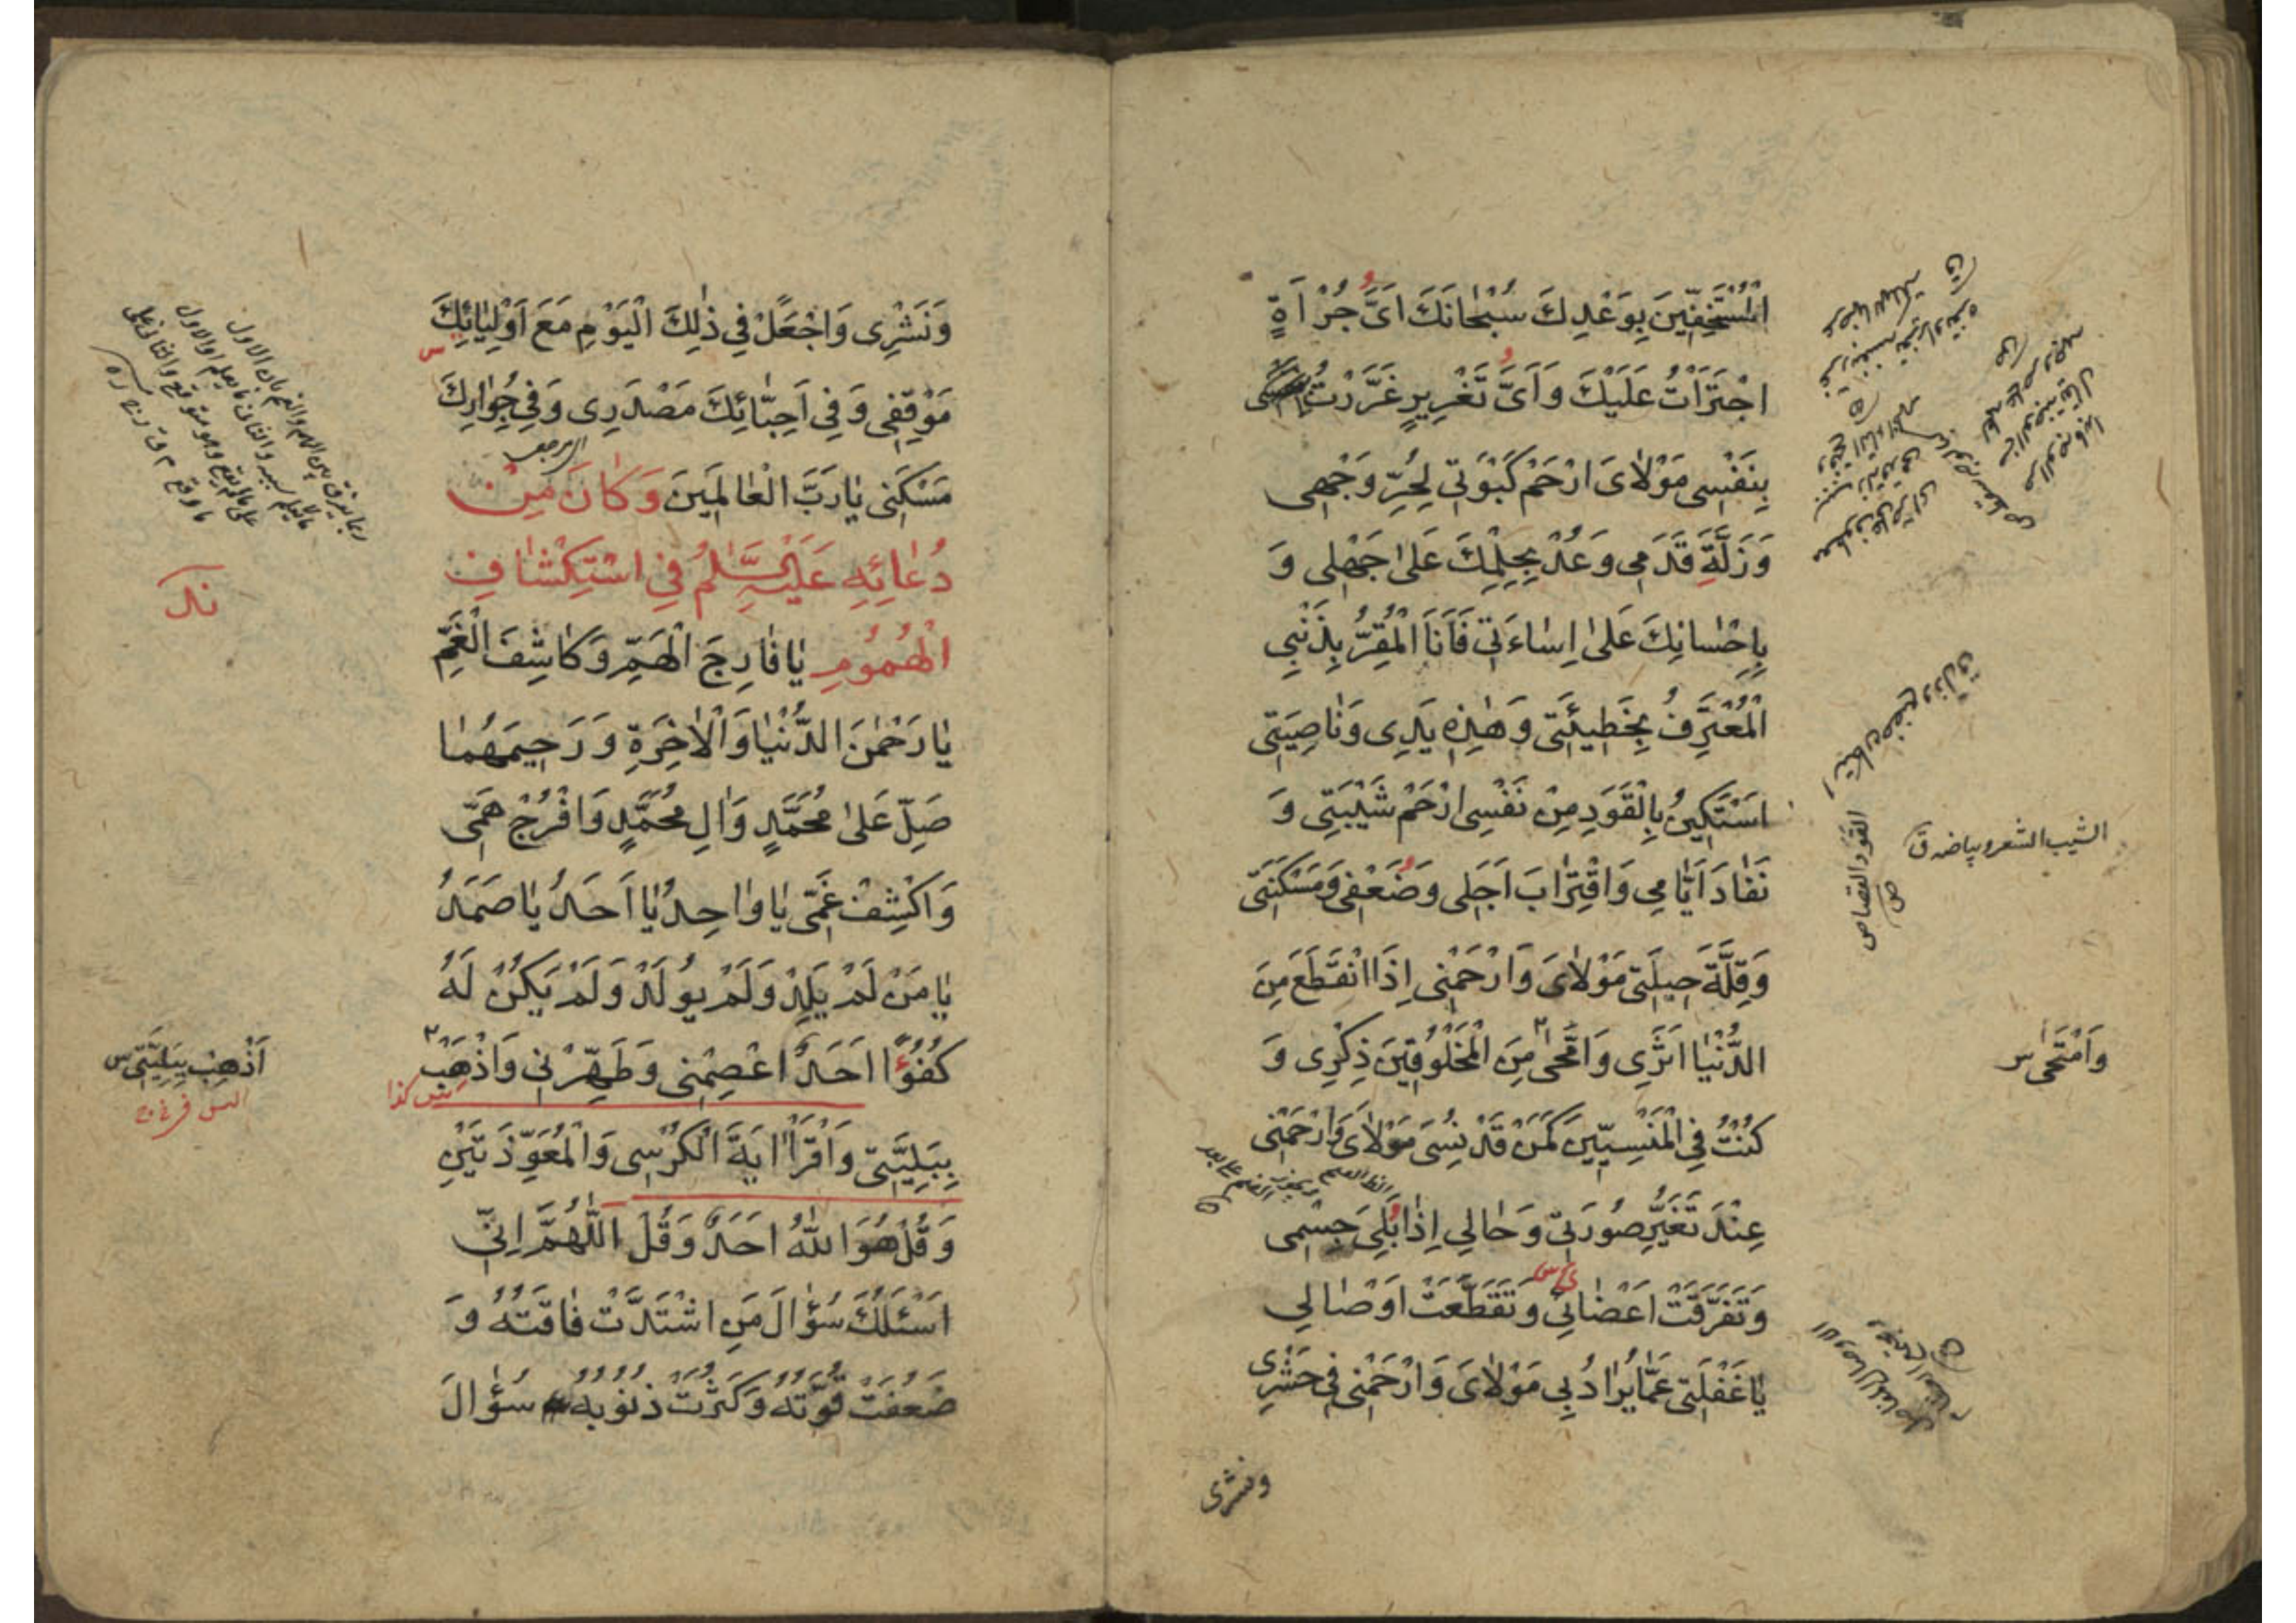 الْمُسْتَخِفِّينَ بِوَعْدِكَ سُبْحَانَكَ اَىَّ جُرْاَةٍ
اجْتَرَأْتُ عَلَيْكَ وَاَىَّ تَغْرِيرٍ غَرَّرْتُ
بِنَفْسِى مَوْلَاىَ ارْحَمْ كَبْوَتِى لِحُرِّ وَجْهِى
وَزَلَّةَ قَدَمِى وَعُدْ بِحِلْمِكَ عَلَىٰ جَهْلِى وَ
بِاِحْسَانِكَ عَلَىٰ اِسَاءَتِى فَاَنَا الْمُقِرُّ بِذَنْبِى
الْمُعْتَرِفُ بِخَطِيئَتِى وَهٰذِهِ يَدِى وَنَاصِيَتِى
اَسْتَكِينُ بِالْقَوَدِ مِنْ نَفْسِى ارْحَمْ شَيْبَتِى وَ
نَفَادَ اَيَّامِى وَاقْتِرَابَ اَجَلِى وَضَعْفِى وَمَسْكَنَتِى
وَقِلَّةَ حِيلَتِى مَوْلَاىَ وَارْحَمْنِى اِذَا انْقَطَعَ مِنَ
الدُّنْيَا اَثَرِى وَامَّحىٰ مِنَ الْمَخْلُوقِينَ ذِكْرِى وَ
كُنْتُ فِى الْمَنْسِيِّينَ كَمَنْ قَدْ نُسِىَ مَوْلَاىَ وَارْحَمْنِى
عِنْدَ تَغَيُّرِ صُورَتِى وَحَالِى اِذَا بَلِىَ جِسْمِى
وَتَفَرَّقَتْ اَعْضَائِى وَتَقَطَّعَتْ اَوْصَالِى
يَا غَفْلَتِى عَمَّا يُرَادُ بِى مَوْلَاىَ وَارْحَمْنِى فِى حَشْرِى
ونشرى
الشيب الشعر وبياضه ق
القود القصاص
ص
وَامْتَحىٰ س
وَنَشْرِى وَاجْعَلْ فِى ذٰلِكَ الْيَوْمِ مَعَ اَوْلِيَائِكَ
مَوْقِفِى وَفِى اَحِبَّائِكَ مَصْدَرِى وَفِى جِوَارِكَ
مَسْكَنِى يَا رَبَّ الْعَالَمِينَ وَكَانَ مِنْ
دُعَائِهِ عَلَيْهِ السَّلَامُ فِى اسْتِكْشَافِ
الْهُمُومِ يَا فَارِجَ الْهَمِّ وَكَاشِفَ الْغَمِّ
يَا رَحْمٰنَ الدُّنْيَا وَالْاٰخِرَةِ وَرَحِيمَهُمَا
صَلِّ عَلىٰ مُحَمَّدٍ وَاٰلِ مُحَمَّدٍ وَافْرُجْ هَمِّى
وَاكْشِفْ غَمِّى يَا وَاحِدُ يَا اَحَدُ يَا صَمَدُ
يَا مَنْ لَمْ يَلِدْ وَلَمْ يُولَدْ وَلَمْ يَكُنْ لَهُ
كُفُؤًا اَحَدٌ اعْصِمْنِى وَطَهِّرْنِى وَاذْهَبْ
بِبَلِيَّتِى وَاقْرَأْ اٰيَةَ الْكُرْسِى وَالْمُعَوِّذَتَيْنِ
وَقُلْ هُوَ اللّٰهُ اَحَدٌ وَقُلْ اَللّٰهُمَّ اِنِّى
اَسْئَلُكَ سُؤٰالَ مَنِ اشْتَدَّتْ فَاقَتُهُ وَ
ضَعُفَتْ قُوَّتُهُ وَكَثُرَتْ ذُنُوبُهُ سُؤٰالَ
ند
اَذْهِبْ بِبَلِيَّتِى س